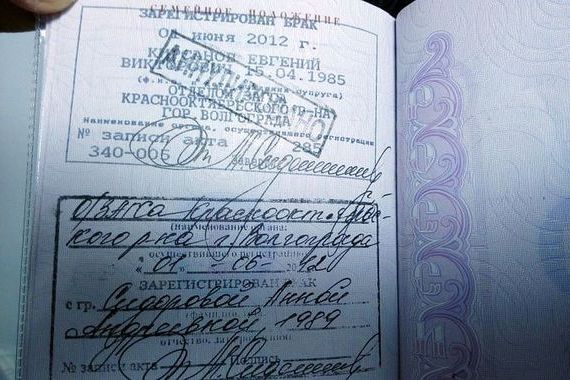 СЕМЕЙНОЕ ПОЛОЖЕНИЕ
ЗАРЕГИСТРИРОВАН БРАК
июня 2012 г.
ЕВГЕНИЙ
15.04.1985
супруга)
КРАСНООКТЯБРЬСКОГО Р-НА
ГОР. ВОЛГОГРАДА
Наименование органа, осуществившего регистрации
№ записи акта 285
340-006
ОЗАГСа Краснооктябрьс-
кого р-на г. Волгограда
(наименование органа,
осуществившего регистрацию)
"01" - 06 - 2012
ЗАРЕГИСТРИРОВАН БРАК
с гр. Сидоровой Анной
Андреевной, 1989
отчество, дата рождения
№ записи акта Подпись